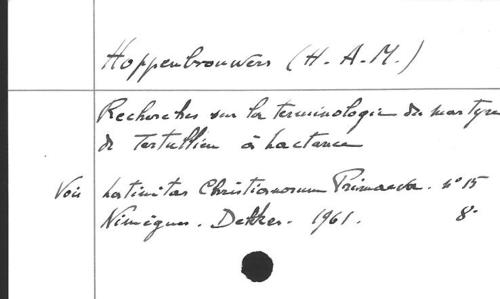 Hoppenbrouwers (H. A. M.)
Recherches sur la terminologie du martyre
de Tertullien à Lactance
Voir Latinitas Christianorum Primaeva. n° 15
Nimègue. Dekker. 1961. 8°